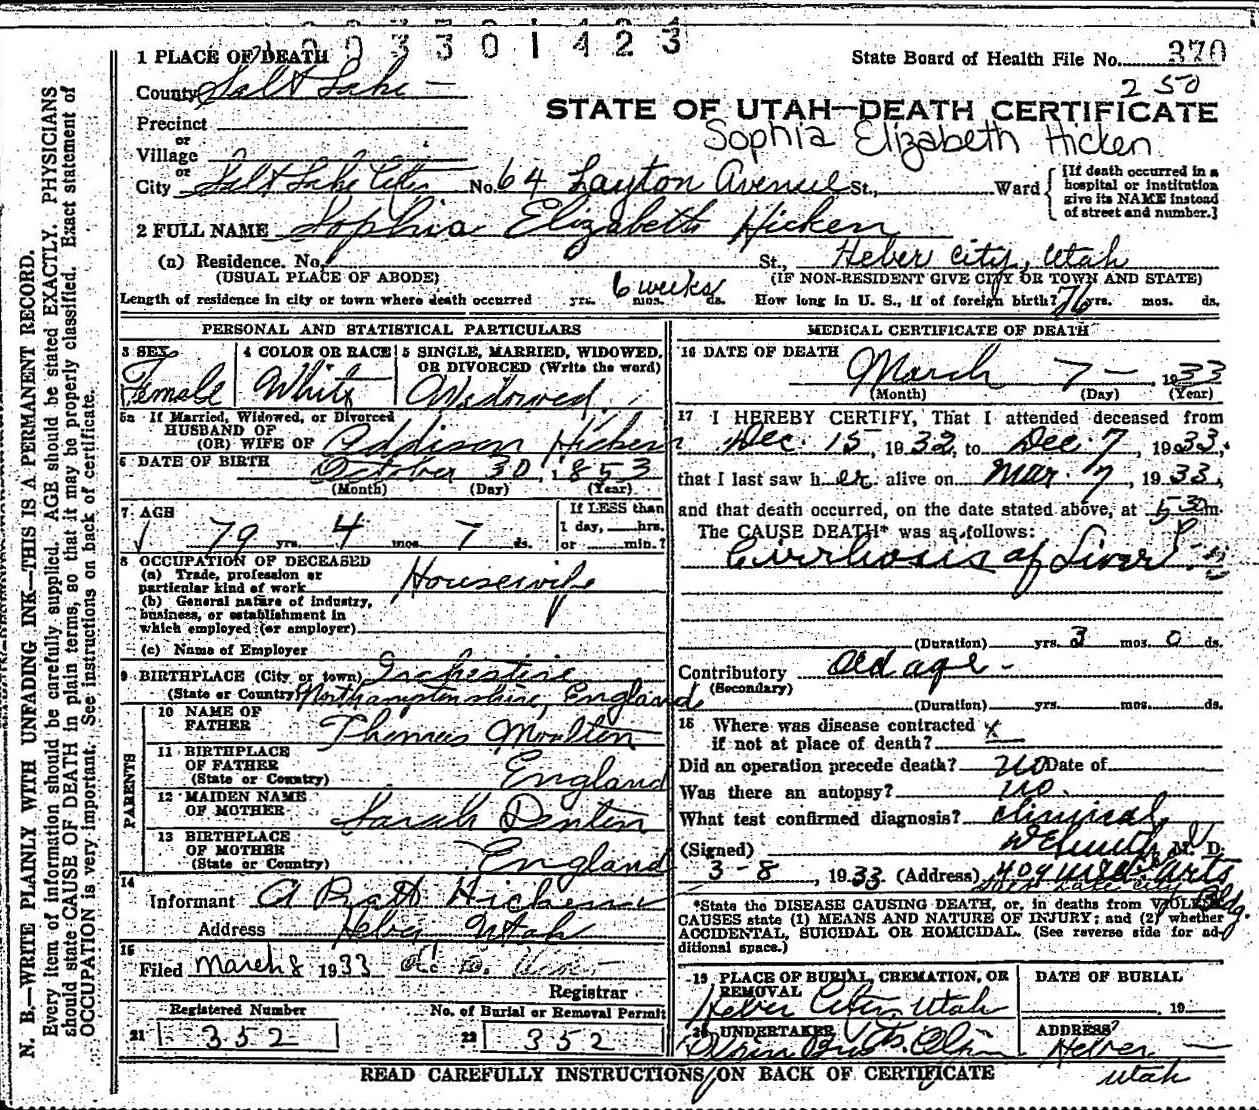 003301423
1 PLACE OF DEATH
State Board of Health File No. 370
County Salt Lake —
250
STATE OF UTAH—DEATH CERTIFICATE
Precinct
Sophia Elizabeth Hicken
or
Village
or
City Salt Lake City No. 64 Layton Avenue St., Ward
[If death occurred in a hospital or institution give its NAME instead of street and number.]
2 FULL NAME Sophia Elizabeth Hicken
(a) Residence. No. St., Heber City, Utah
(USUAL PLACE OF ABODE) (IF NON-RESIDENT GIVE CITY OR TOWN AND STATE)
Length of residence in city or town where death occurred yrs. 6 weeks mos. ds. How long in U. S., if of foreign birth? 76 yrs. mos. ds.
PERSONAL AND STATISTICAL PARTICULARS
3 SEX Female
4 COLOR OR RACE White
5 SINGLE, MARRIED, WIDOWED, OR DIVORCED (Write the word) Widowed
5a If Married, Widowed, or Divorced
HUSBAND OF
(OR) WIFE OF Addison Hicken
6 DATE OF BIRTH October 30, 1853
(Month) (Day) (Year)
7 AGE 79 yrs. 4 mos. 7 ds.
If LESS than
1 day, hrs.
or min.?
8 OCCUPATION OF DECEASED
(a) Trade, profession or particular kind of work Housewife
(b) General nature of industry, business, or establishment in which employed (or employer)
(c) Name of Employer
9 BIRTHPLACE (City or town) Irchestire
(State or Country) Northamptonshire, England
PARENTS
10 NAME OF FATHER Thomas Moulton
11 BIRTHPLACE OF FATHER (State or Country) England
12 MAIDEN NAME OF MOTHER Sarah Denton
13 BIRTHPLACE OF MOTHER (State or Country) England
14
Informant A Pratt Hicken
Address Heber Utah
15
Filed March 8 1933
Registrar
Registered Number No. of Burial or Removal Permit
21 352 22 352
MEDICAL CERTIFICATE OF DEATH
16 DATE OF DEATH
March 7 — 1933
(Month) (Day) (Year)
17 I HEREBY CERTIFY, That I attended deceased from
Dec. 15, 1932, to Dec. 7, 1933,
that I last saw her alive on Mar. 7, 1933,
and that death occurred, on the date stated above, at 530 m.
The CAUSE DEATH* was as follows:
Cirrhosis of Liver
(Duration) yrs. 3 mos. 0 ds.
Contributory Old age -
(Secondary)
(Duration) yrs. mos. ds.
18 Where was disease contracted
if not at place of death? x
Did an operation precede death? no Date of
Was there an autopsy? no.
What test confirmed diagnosis? clinical
(Signed) M. D.
3-8, 1933 (Address) 409 Med. Arts Bldg.
Salt Lake City
*State the DISEASE CAUSING DEATH, or, in deaths from VIOLENT
CAUSES state (1) MEANS AND NATURE OF INJURY; and (2) whether
ACCIDENTAL, SUICIDAL OR HOMICIDAL. (See reverse side for additional space.)
19 PLACE OF BURIAL, CREMATION, OR REMOVAL
Heber City, Utah
DATE OF BURIAL
19
20 UNDERTAKER
ADDRESS
Heber —
Utah
READ CAREFULLY INSTRUCTIONS ON BACK OF CERTIFICATE
N. B.—WRITE PLAINLY WITH UNFADING INK—THIS IS A PERMANENT RECORD.
Every item of information should be carefully supplied. AGE should be stated EXACTLY. PHYSICIANS
should state CAUSE OF DEATH in plain terms, so that it may be properly classified. Exact statement of
OCCUPATION is very important. See instructions on back of certificate.